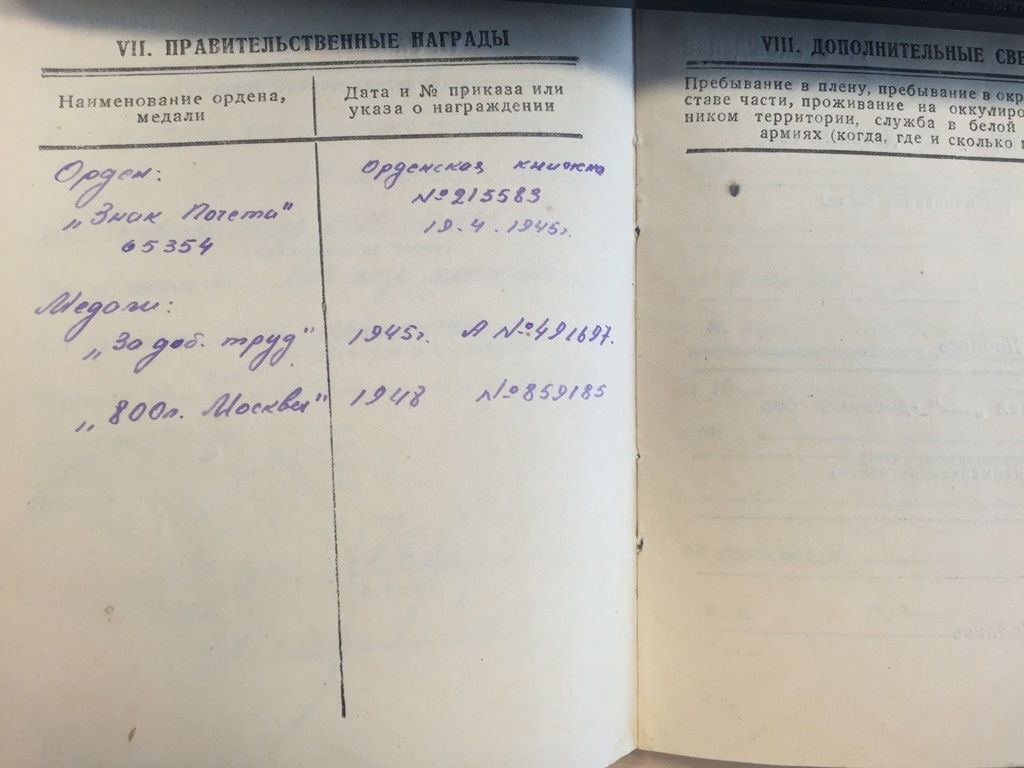 VII. ПРАВИТЕЛЬСТВЕННЫЕ НАГРАДЫ
Наименование ордена,
медали
Дата и № приказа или
указа о награждении
Орден:
„Знак Почета"
65354
Орденская книжка
№ 215583
19.4.1945г.
Медали:
„За доб. труд" 1945г. А № 491697.
„800л. Москвы" 1948 № 859185
VIII. ДОПОЛНИТЕЛЬНЫЕ СВЕ
Пребывание в плену, пребывание в окр
ставе части, проживание на оккупиро
ником территории, служба в белой
армиях (когда, где и сколько